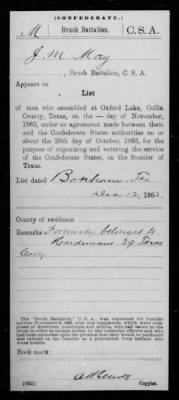 (CONFEDERATE.)
M Brush Battalion. C.S.A.
J. M. May
, Brush Battalion, C. S. A.
Appears on
List
of men who assembled at Oxford Lake, Collin
County, Texas, on the — day of November,
1863, under an agreement made between them
and the Confederate States authorities on or
about the 20th day of October, 1863, for the
purpose of organizing and entering the service
of the Confederate States, on the frontier of
Texas.
List dated Bonham, Tex
Dec 12, 1863.
County of residence
Remarks Formerly belonged to
Boardmans 29 Texas
Cavy.
The "Brush Battalion," C.S.A., was organized for frontier
service November 8, 1863, with ten companies, which were
composed of deserters,
Book mark:
(652) Copyist.